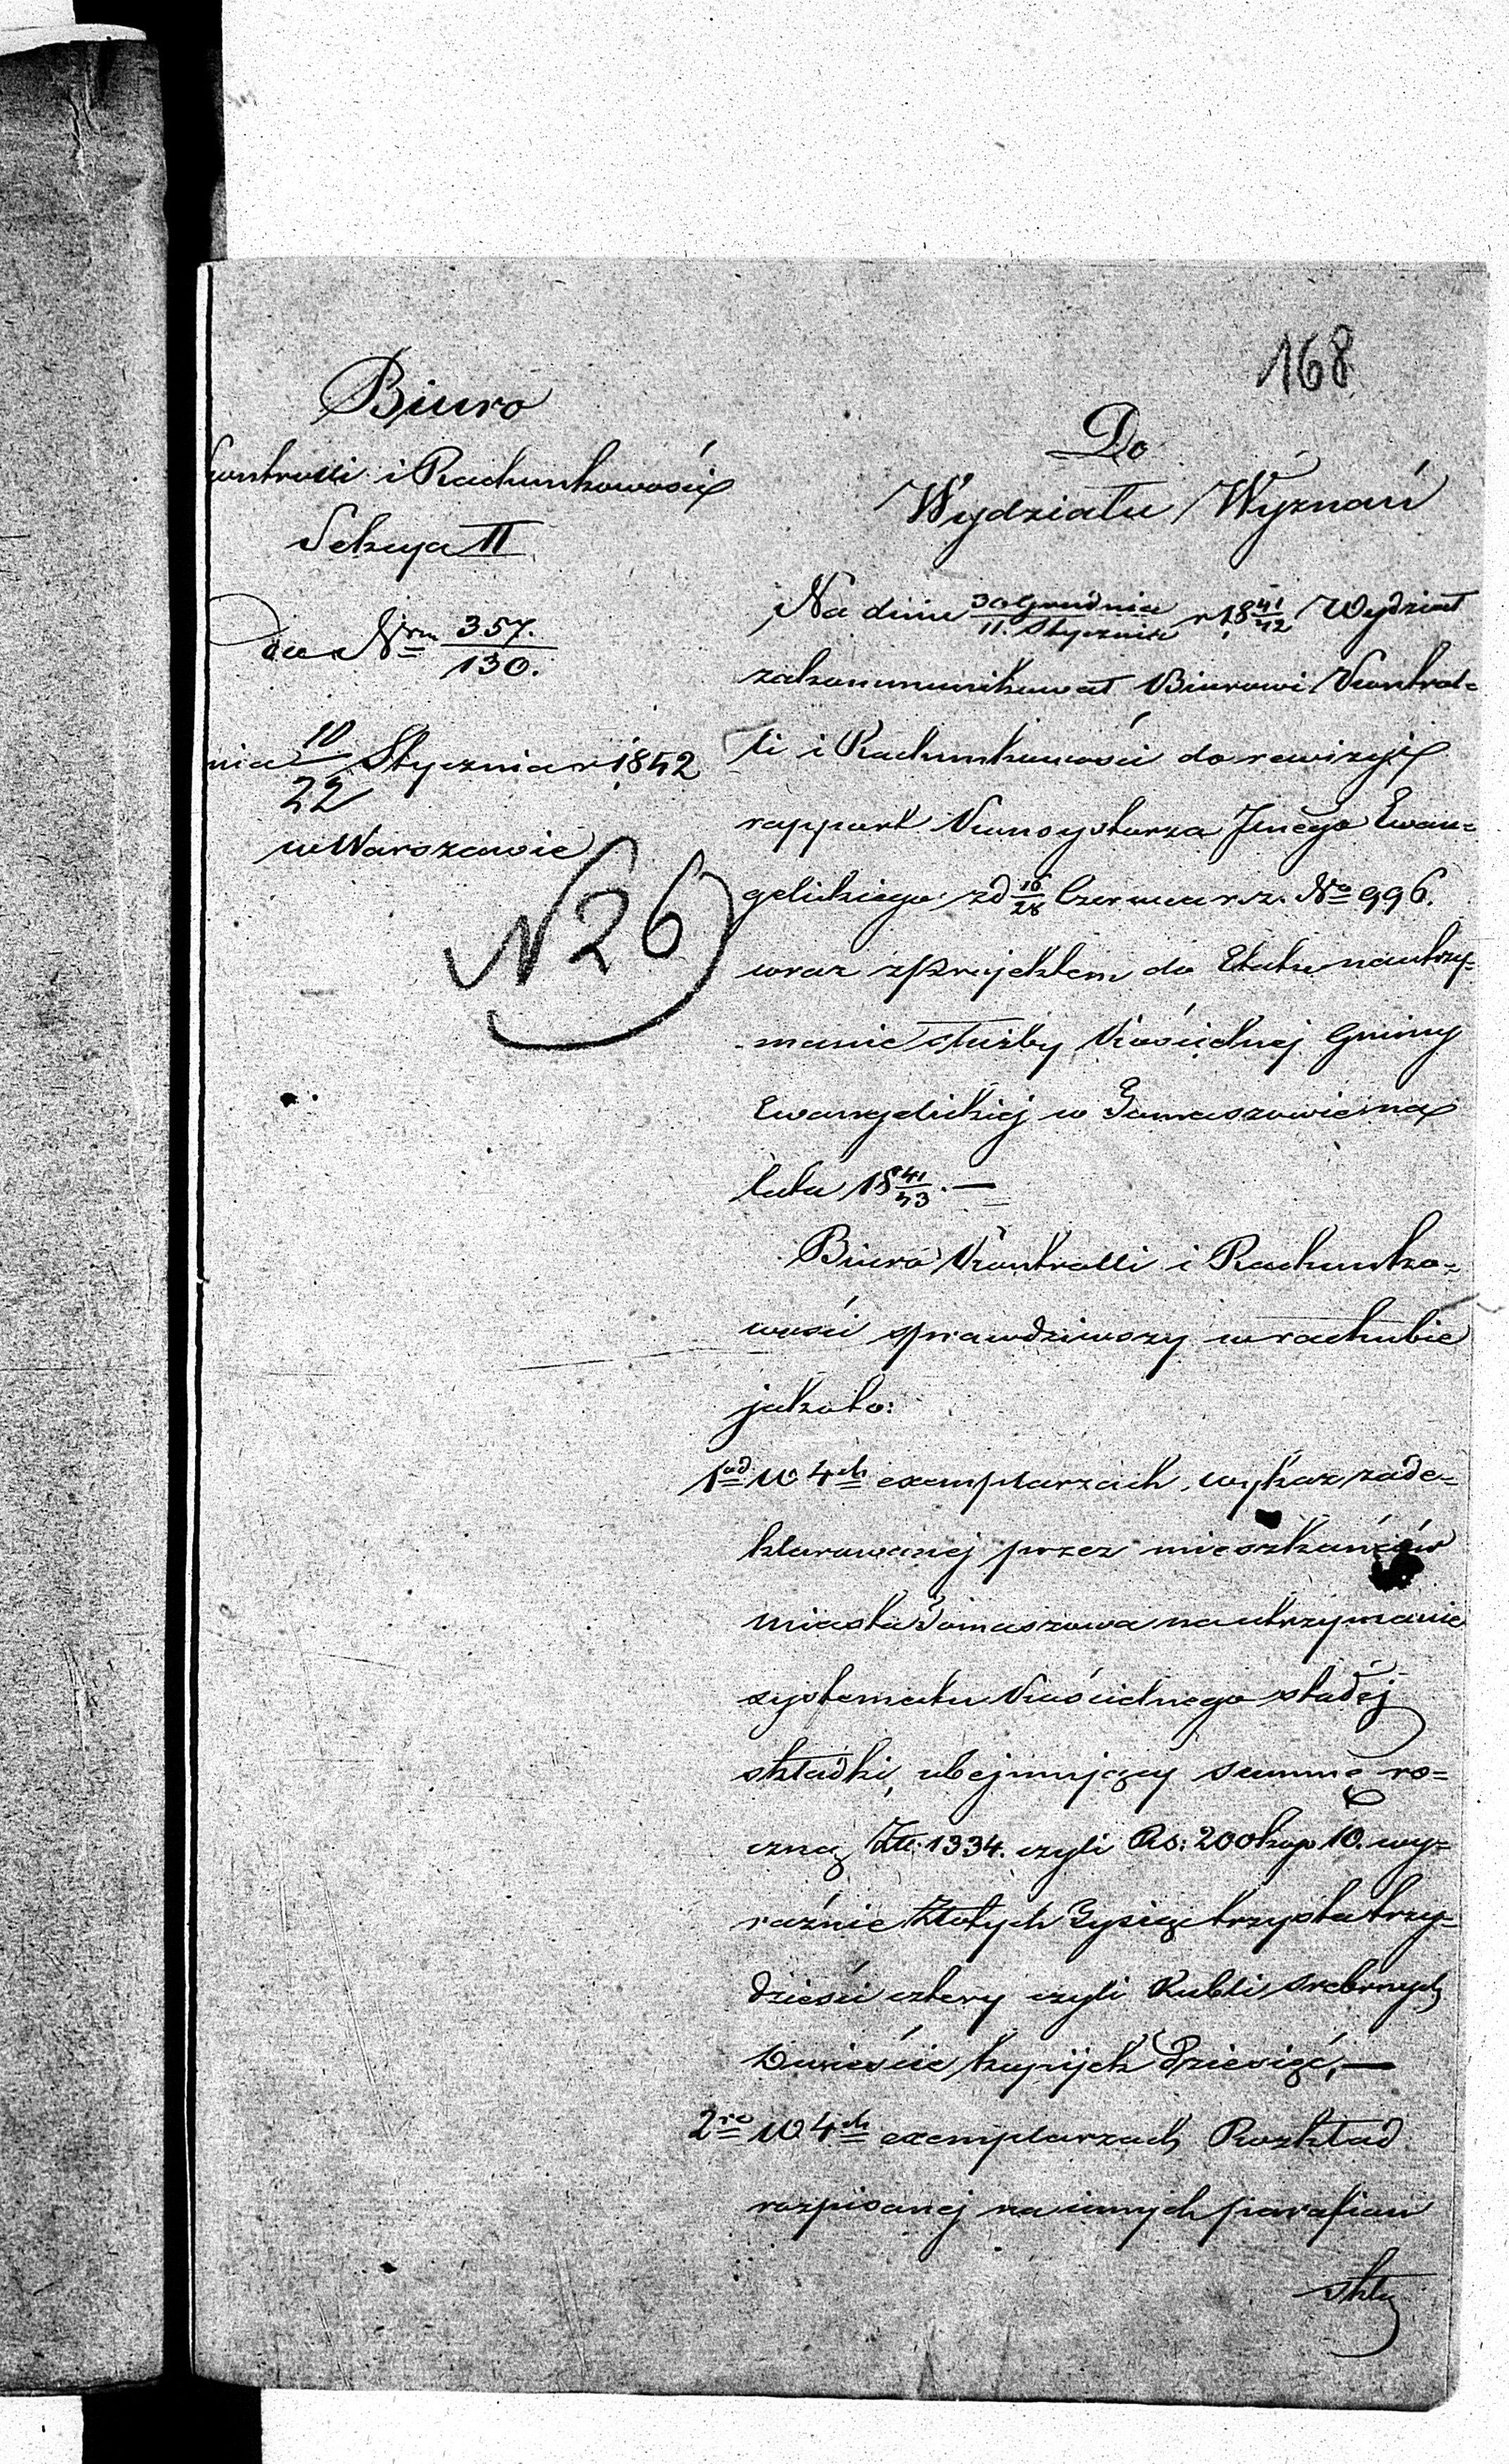 168
Biuro
ontrolli i Rachunkowości
Sekcya II
Do Nrm 357./130.
nia 10/22 Stycznia r 1842
w Warszawie
N 26
Do
Wydziału Wyznań
Na dniu 30 Grudnia/11. Stycznia r. 18 41/42 Wydział
zakommunikował Biurowi Kontrol=
li i Rachunkowości do rewizyi
rapport Konsystorza Jnego Ewan=
gelickiego z d 16/28 Czerwca r. z. No 996.
wraz z Projektem do Etatu na utrzy=
manie służby Kościelnej Gminy
Ewangelickiej w Tomaszowie na
lata 18 41/43. —
Biuro Kontrolli i Rachunko=
wości sprawdziwszy w rachubie
jakoto:
1od W 4ch exemplarzach wykaz zade=
klarowanej przez mieszkańców
miasta Tomaszowa na utrzymanie
systematu Kościelnego stałej
składki, obejmujący summę ro=
czną Złł. 1334. czyli Rs: 200 kop 10. wy=
raźnie Złotych Tysiąc trzysta trzy=
dzieści cztery czyli Rubli srebrnych
Dwieście kopijek dziesięć, —
2re W 4ch exemplarzach Rozkład
rozpisanej na innych parafian
skła